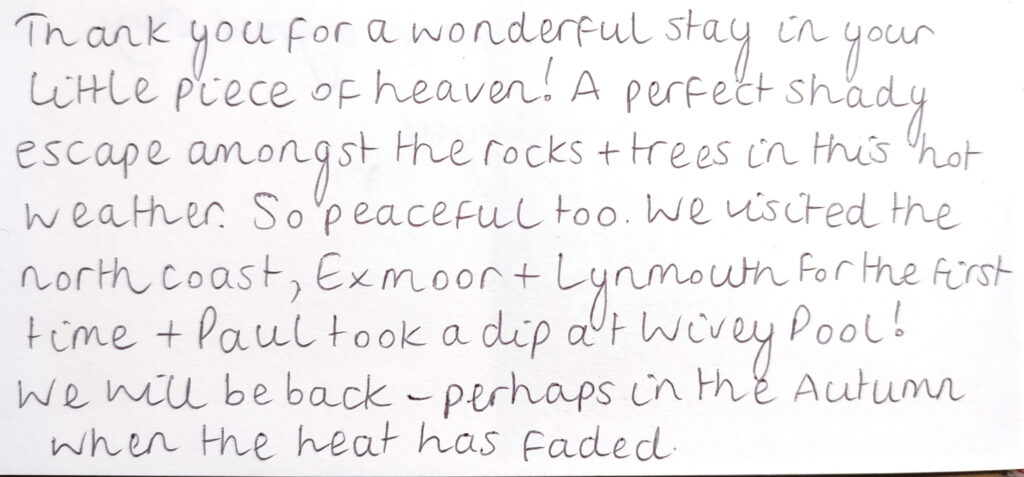 Thank you for a wonderful stay in your
little piece of heaven! A perfect shady
escape amongst the rocks + trees in this hot
weather. So peaceful too. We visited the
north coast, Exmoor + Lynmouth for the first
time + Paul took a dip at Wivey Pool!
We will be back - perhaps in the Autumn
when the heat has faded.